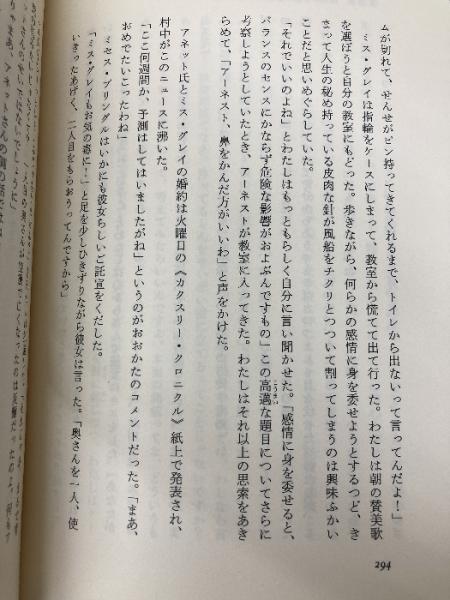 ムが別れて、せんせがピン持ってきてくれるまで、トイレから出ないって言ってんだよ！」
ミス・グレイは指輪をケースにしまって、教室から慌てて出て行った。わたしは朝の賛美歌
を選ぼうと自分の教室にもどった。歩きながら、何らかの感情に身を委せようとするつど、き
まって人生の秘め持っている皮肉な針が風船をチクリとつついて割ってしまうのは興味ぶかい
ことだと思いめぐらしていた。
「それでいいのよね」とわたしはもっともらしく自分に言い聞かせた。「感情に身を委せると、
バランスのセンスにかならず危険な影響がおよぶんですもの」この高邁な題目についてさらに
考察しようとしていたとき、アーネストが教室に入ってきた。わたしはそれ以上の思索をあき
らめて、「アーネスト、鼻をかんだ方がいいわ」と声をかけた。
アネット氏とミス・グレイの婚約は火曜日の《カクスリー・クロニクル》紙上で発表され、
村中がこのニュースに沸いた。
「ここ何週間か、予測はしてはいましたがね」というのがおおかたのコメントだった。「まあ、
おめでたいこったわね」
ミセス・プリングルはいかにも彼女らしいご託宣をくだした。
「ミス・グレイもお気の毒に！」と足を少しひきずりながら彼女は言った。「奥さんを一人、使
いきったあげく、二人目をもらおうってんですから」
294